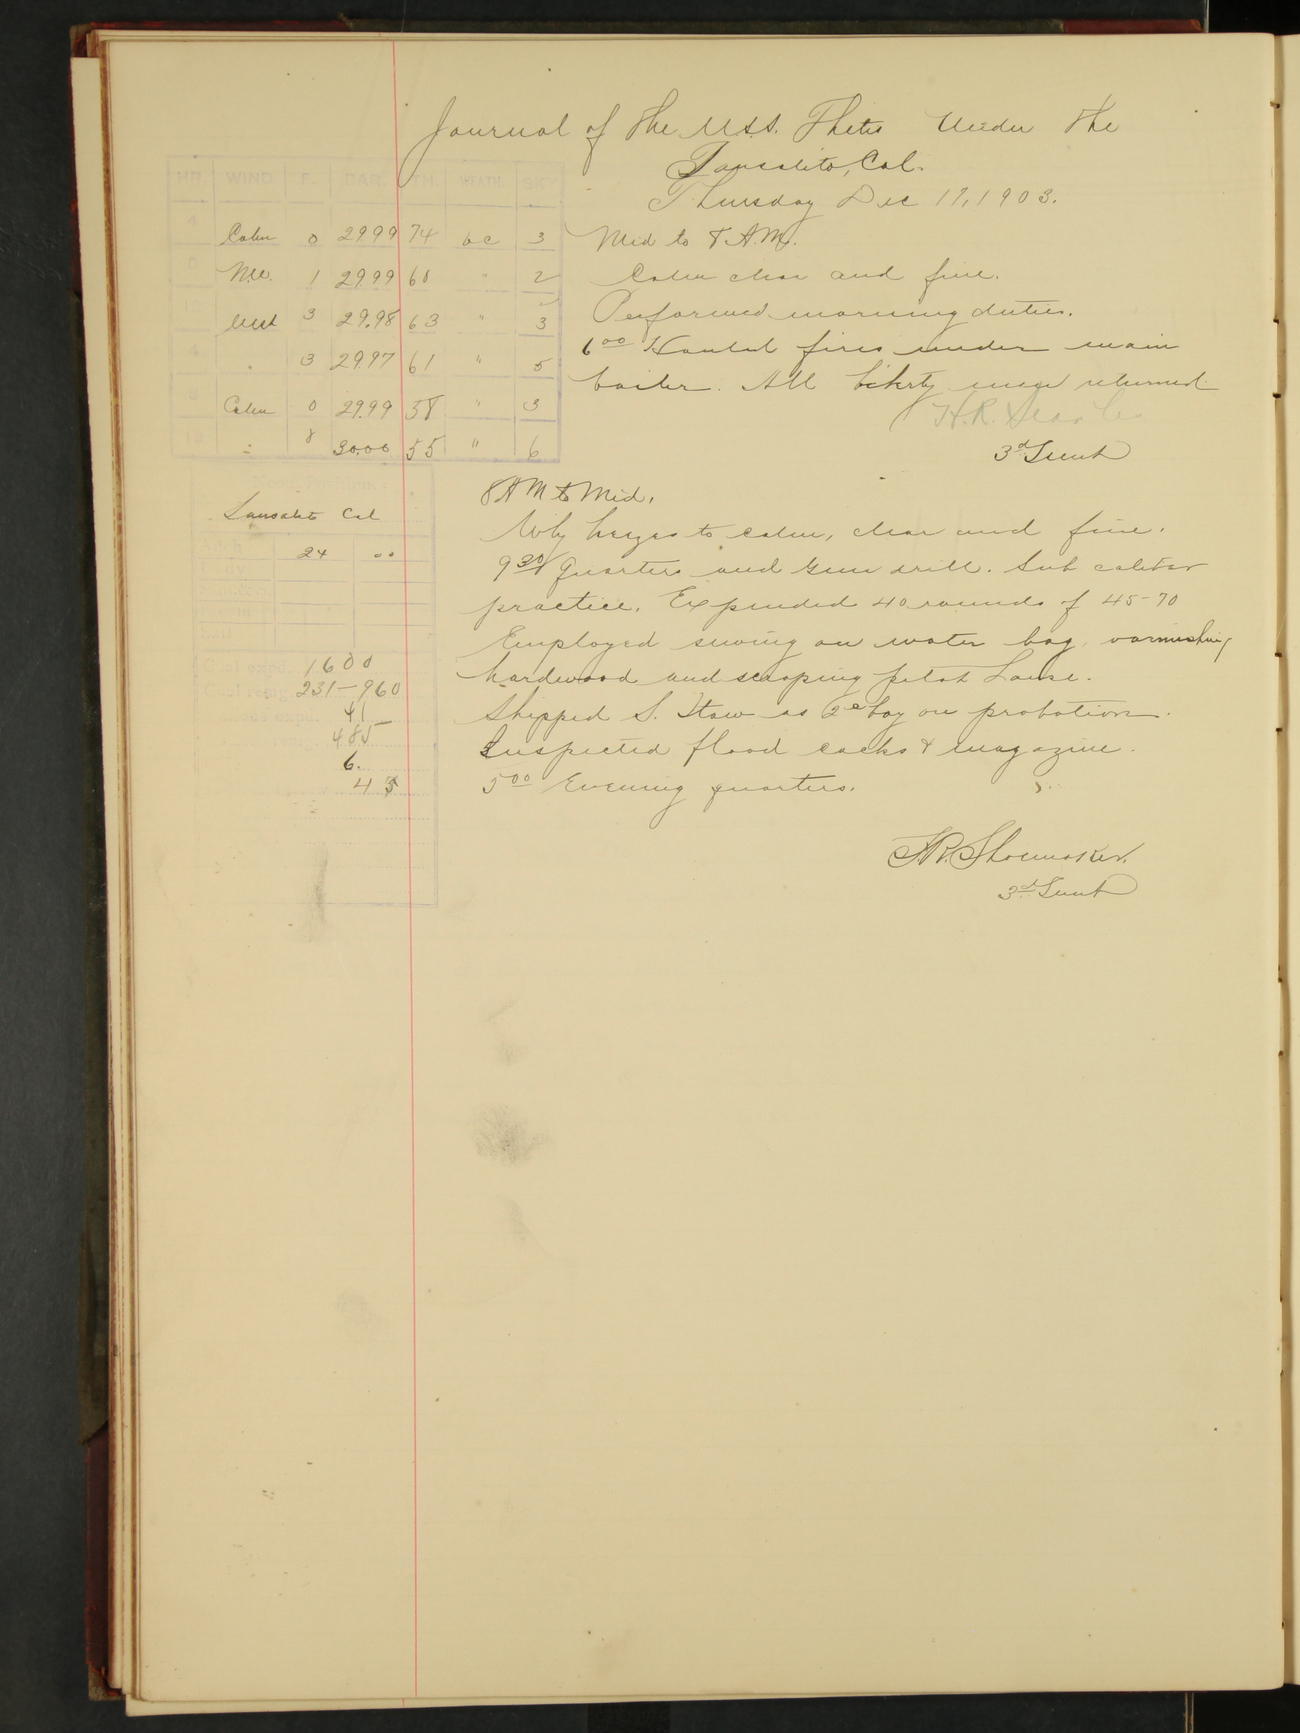 Journal of the U.S.S. Thetis Under the
Sausalito, Cal.
Thursday Dec 17, 1903.
HR. WIND F. BAR. TH. WEATH. SKY
4 Calm 0 29.99 74 bc 3
8 NW. 1 29.99 60 " 2
12 West 3 29.98 63 " 3
4 " 3 29.97 61 " 5
8 Calm 0 29.99 58 " 3
12 " 30.00 55 " 6
Mid to 8 A.M.
Calm clear and fine.
Performed morning duties.
6 00 Hauled fires under main
boiler. All liberty men returned.
H.R. Searles
3d Lieut
Noon Position
Sausalito Cal
24 00
Coal expd. 1600
Coal remg. 231-960
41
485
6.
45
8 AM to Mid.
Wly breezes to calm, clear and fine.
9 30 Quarters and Gun drill. Sub caliber
practice. Expended 40 rounds of 45-70
Employed sewing on water bag, varnishing
hardwood and scraping pilot house.
Shipped S. as 2c boy on probation.
Inspected flood cocks & magazine.
5 00 Evening quarters.
F.R. Shoemaker.
3d Lieut